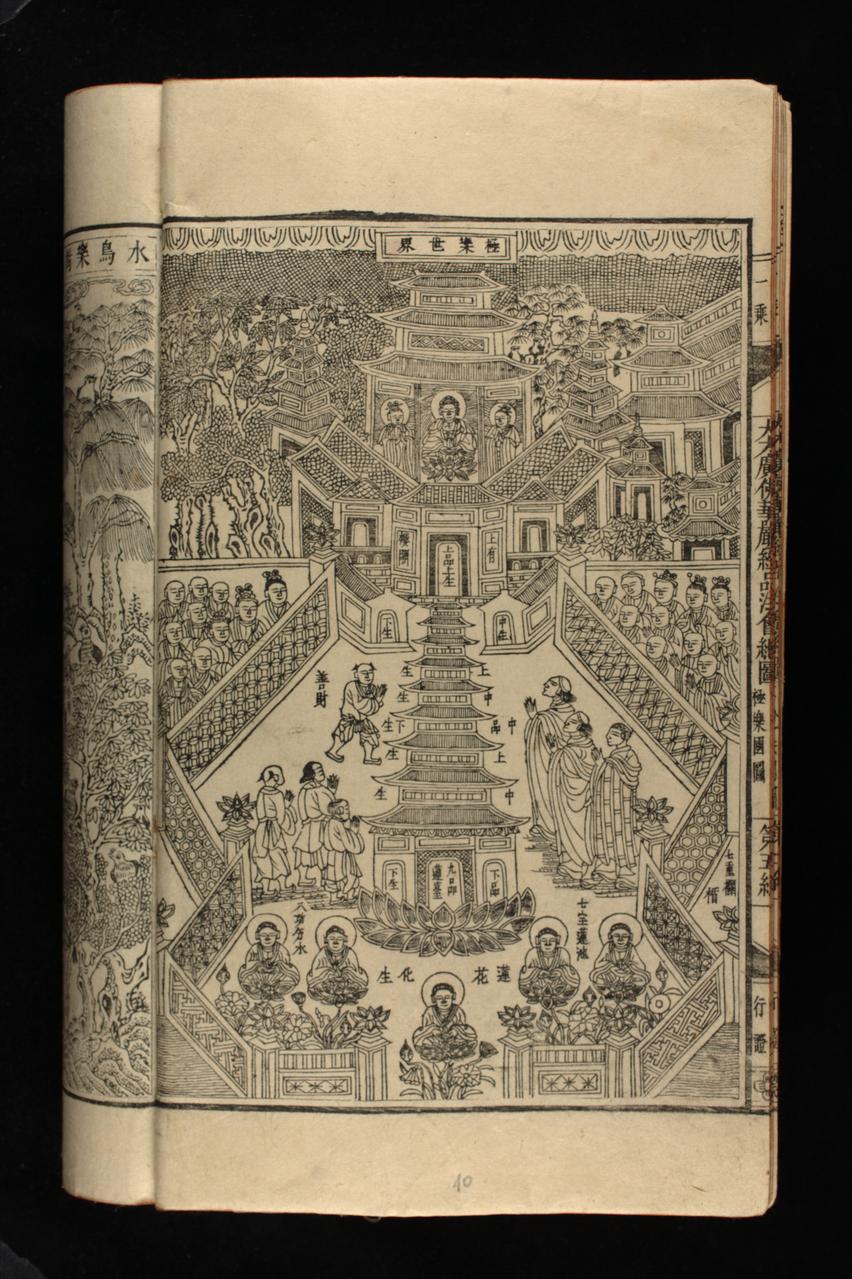 極樂世界
水鳥樂
上品上生
上有
樓閣
中生
下生
善財
上
生
中
生
中品
下生
上
生
中
生
九品蓮臺
下品
下生
七重欄楯
七宝蓮池
蓮花化生
一乘
大方廣佛華嚴經品法會總圖
極樂國圖
第五
行證
10